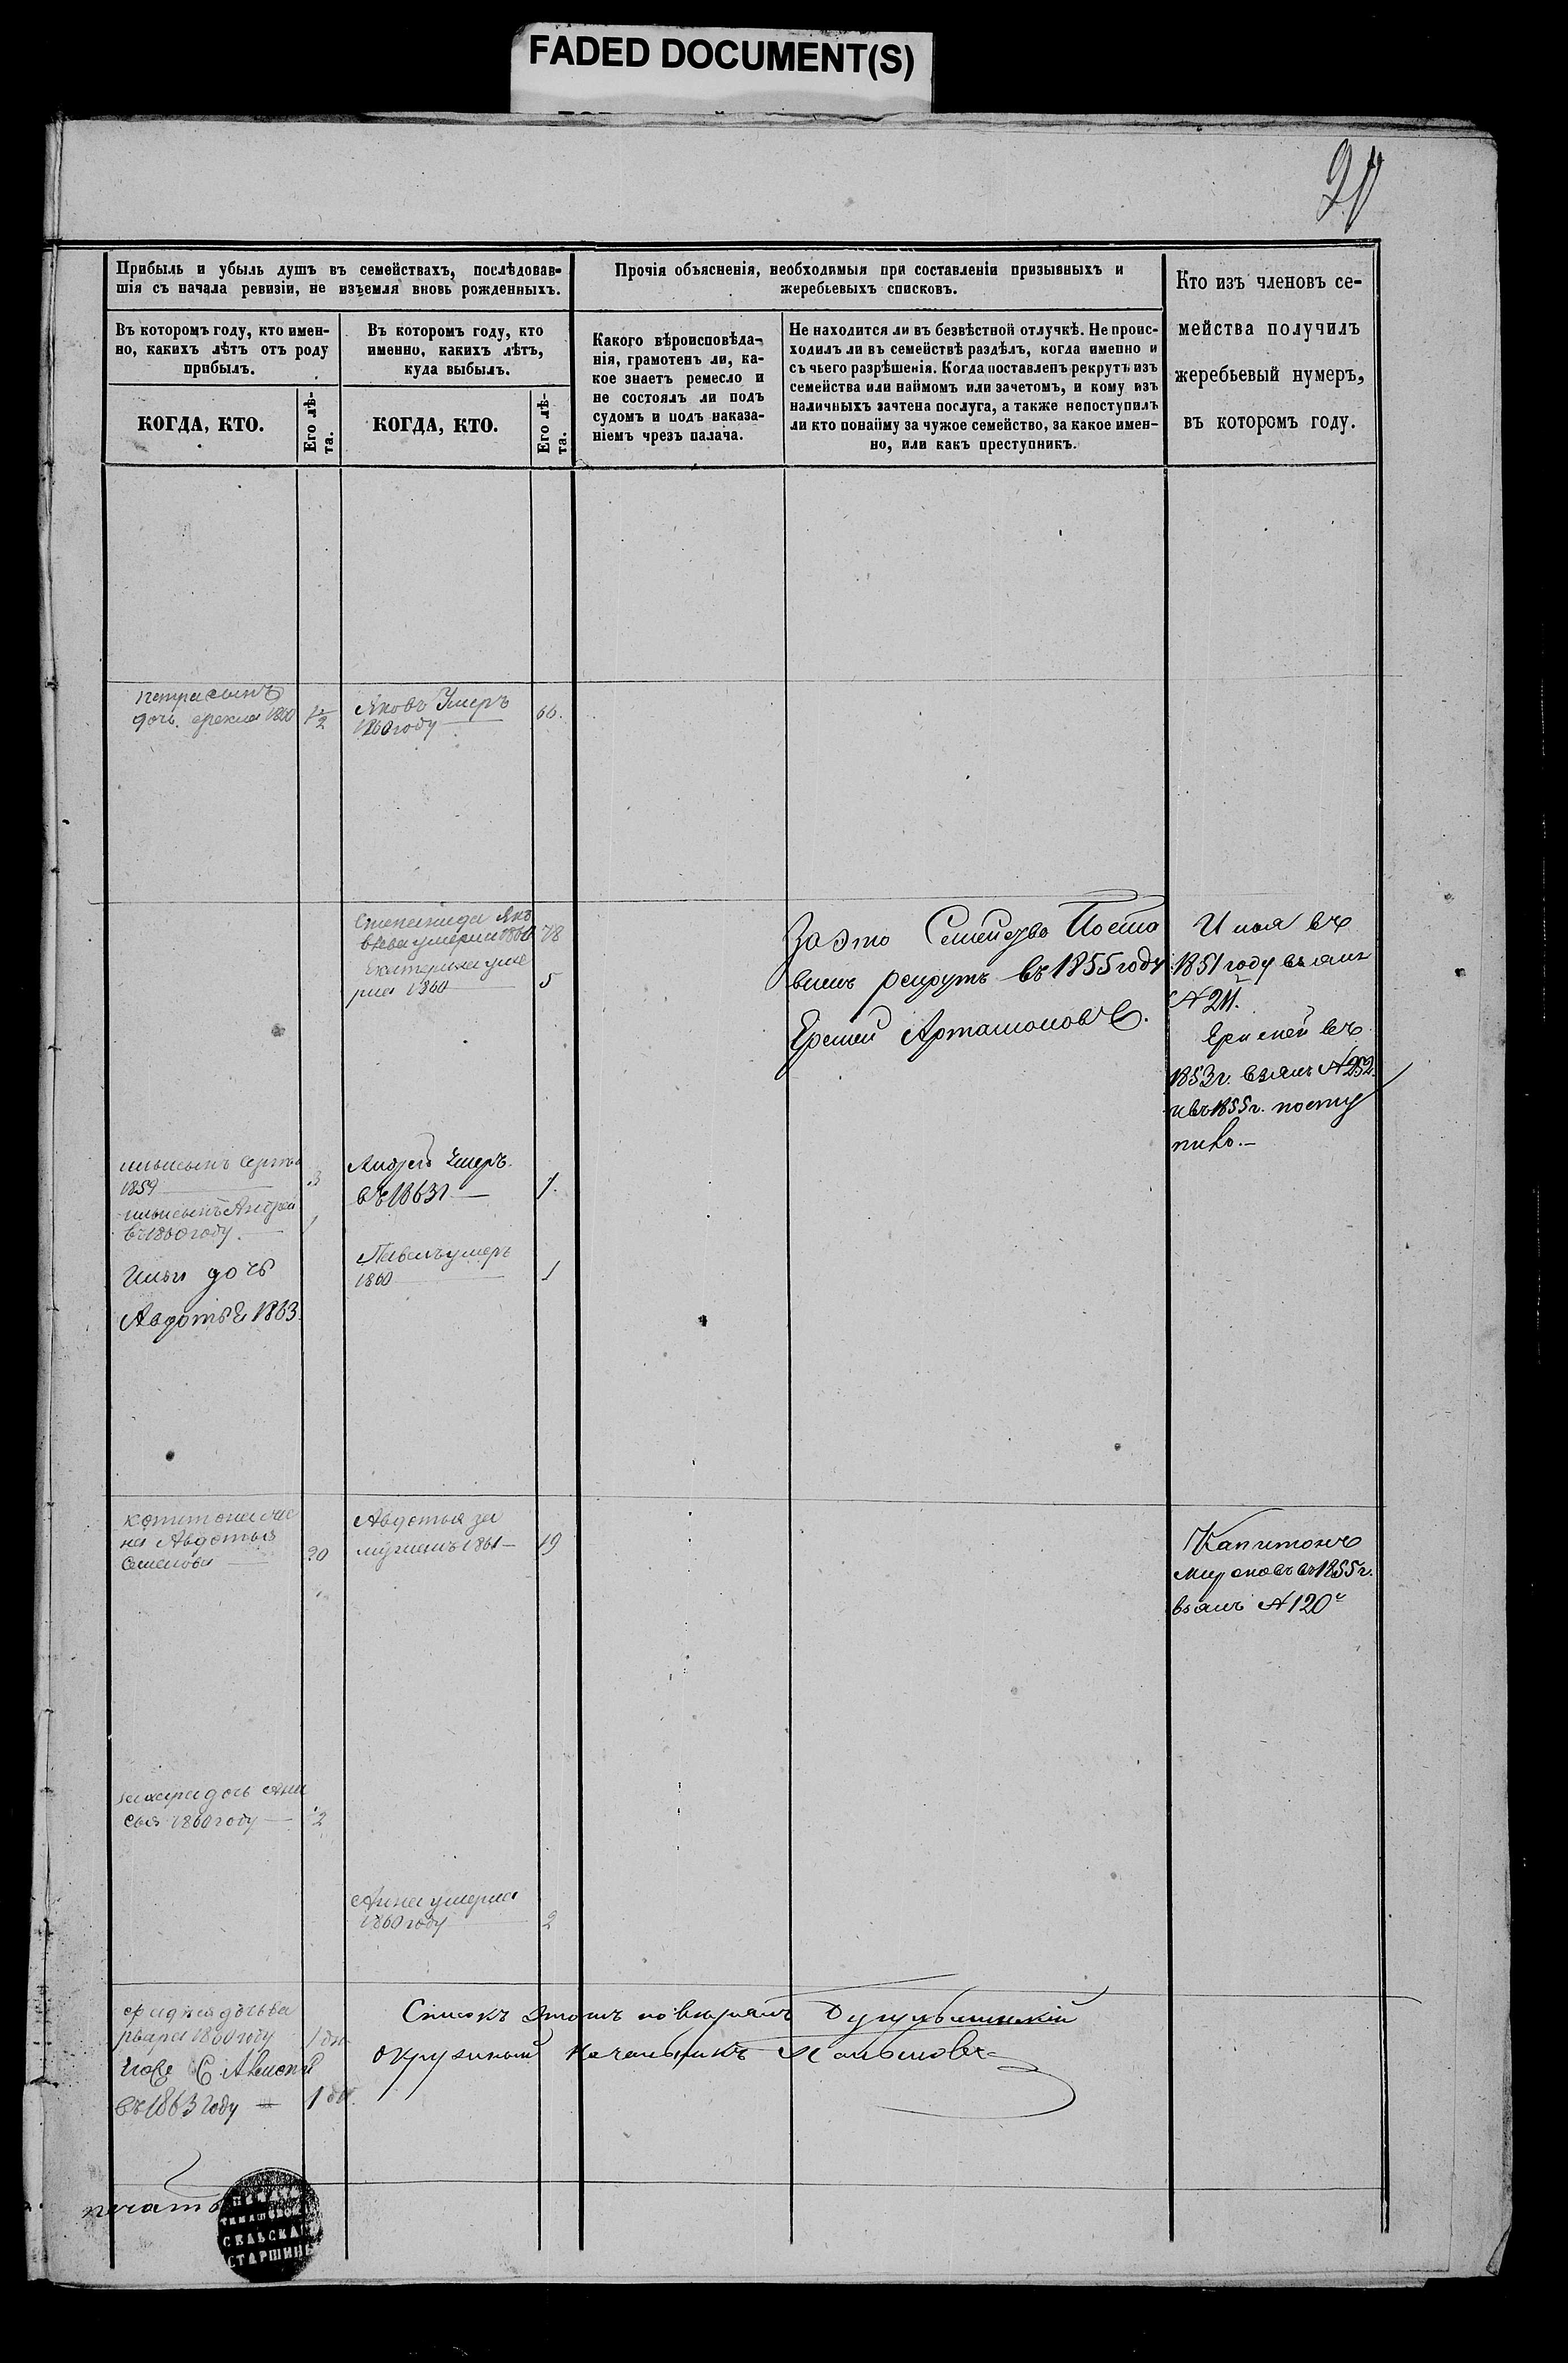 FADED DOCUMENT(S)
Прибыль и убыль душъ въ семействахъ, послѣдовав-
шія съ начала ревизіи, не изъемля вновь рожденныхъ.
Прочія объясненія, необходимыя при составленіи призывныхъ и
жеребьевыхъ списковъ.
Кто изъ членовъ се-
мейства получилъ
жеребьевый нумеръ,
въ которомъ году.
Въ которомъ году, кто имен-
но, какихъ лѣтъ отъ роду
прибылъ.
Въ которомъ году, кто
именно, какихъ лѣтъ,
куда выбылъ.
Какого вѣроисповѣда-
нія, грамотенъ ли, ка-
кое знаетъ ремесло и
не состоялъ ли подъ
судомъ и подъ наказа-
ніемъ чрезъ палача.
Не находится ли въ безвѣстной отлучкѣ. Не проис-
ходилъ ли въ семействѣ раздѣлъ, когда именно и
съ чьего разрѣшенія. Когда поставленъ рекрутъ изъ
семейства или наймомъ или зачетомъ, и кому изъ
наличныхъ зачтена послуга, а также непоступилъ
ли кто понайму за чужое семейство, за какое имен-
но, или какъ преступникъ.
КОГДА, КТО.
Его лѣ-
та.
КОГДА, КТО.
Его лѣ-
та.
дочь 1860 1/2
Яковъ Умеръ
1860 году 66.
Степанида Яко
влева умерла 1860 78
Екатерина уме
рла 1860 5
За это Семейство Поста
вленъ рекрутъ въ 1855 году
Еремей Артамоновъ.
Илья въ
1851 году взялъ
№ 211.
Еремей въ
1853 г. взялъ № 252.
и въ 1855 г. посту
пилъ.
ильи сынъ Сергѣй
1859 3
ильи сынъ Андрей
въ 1860 году. 1
Ильи дочь
Авдотья 1863.
Андрей Умеръ.
въ 1863 г 1.
Павелъ умеръ
1860 1
капитона же
на Авдотья
Семенова 20
Авдотья за
мужемъ 1861 19
Капитонъ
Мироновъ въ 1855 г.
взялъ № 120
дочь Ани
сья 1860 году 2
Анна умерла
1860 году 2
дочь Ва
рвара 1860 году
въ 1863 году
Списокъ этотъ повѣрялъ Бугульминскій
Окружный Начальникъ
печать
СЕЛЬСКА
СТАРШИН